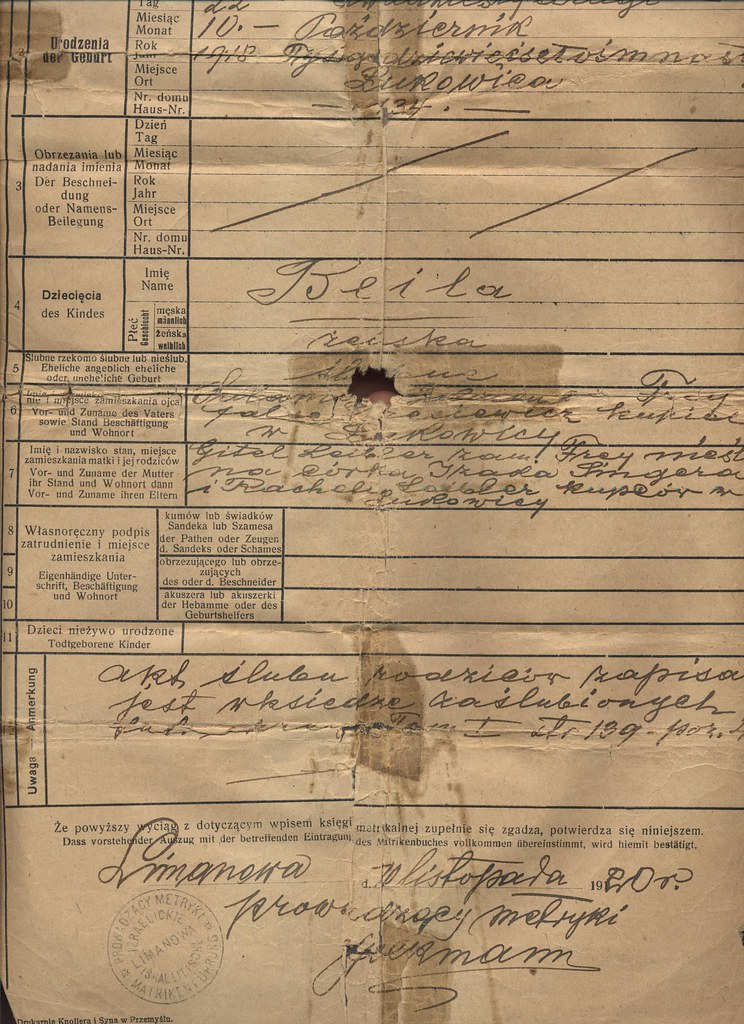 Tag
22
2
Urodzenia
der Geburt
Miesiąc
Monat
10.— Październik
Rok
Jahr
1918
Miejsce
Ort
Żukowica
Nr. domu
Haus-Nr.
— 134. —
3
Obrzezania lub
nadania imienia
Der Beschnei-
dung
oder Namens-
Beilegung
Dzień
Tag
Miesiąc
Monat
Rok
Jahr
Miejsce
Ort
Nr. domu
Haus-Nr.
4
Dziecięcia
des Kindes
Imię
Name
Beila
Płeć
Geschlecht
męska
männlich
żeńska
weiblich
żeńska
5
Ślubne rzekomo ślubne lub nieślub.
Eheliche angeblich eheliche
oder uneheliche Geburt
6
nie i miejsce zamieszkania ojca
Vor- und Zuname des Vaters
sowie Stand Beschäftigung
und Wohnort
Frey
kupiec
w Żukowicy
7
Imię i nazwisko stan, miejsce
zamieszkania matki i jej rodziców
Vor- und Zuname der Mutter
ihr Stand und Wohnort dann
Vor- und Zuname ihren Eltern
Gitel Leibler zam. Frey
na córka Izaka Singera
i Racheli Leibler kupców w
Żukowicy
8
9
10
Własnoręczny podpis
zatrudnienie i miejsce
zamieszkania
Eigenhändige Unter-
schrift, Beschäftigung
und Wohnort
kumów lub świadków
Sandeka lub Szamesa
der Pathen oder Zeugen
d. Sandeks oder Schames
obrzezującego lub obrze-
zujących
des oder d. Beschneider
akuszera lub akuszerki
der Hebamme oder des
Geburtshelfers
11
Dzieci nieżywo urodzone
Todtgeborene Kinder
Uwaga — Anmerkung
akt ślubu rodziców zapisa
jest w księdze zaślubionych
Tom I str 139 - poz. 4
Że powyższy wyciąg z dotyczącym wpisem księgi metrykalnej zupełnie się zgadza, potwierdza się niniejszem.
Dass vorstehender Auszug mit der betreffenden Eintragung des Matrikenbuches vollkommen übereinstimmt, wird hiemit bestätigt.
Limanowa d. listopada 1920 r.
prowadzący metryki
PROWADZĄCY METRYKI
IZRAELICKIE
LIMANOWA
Drukarnia Knollera i Syna w Przemyślu.